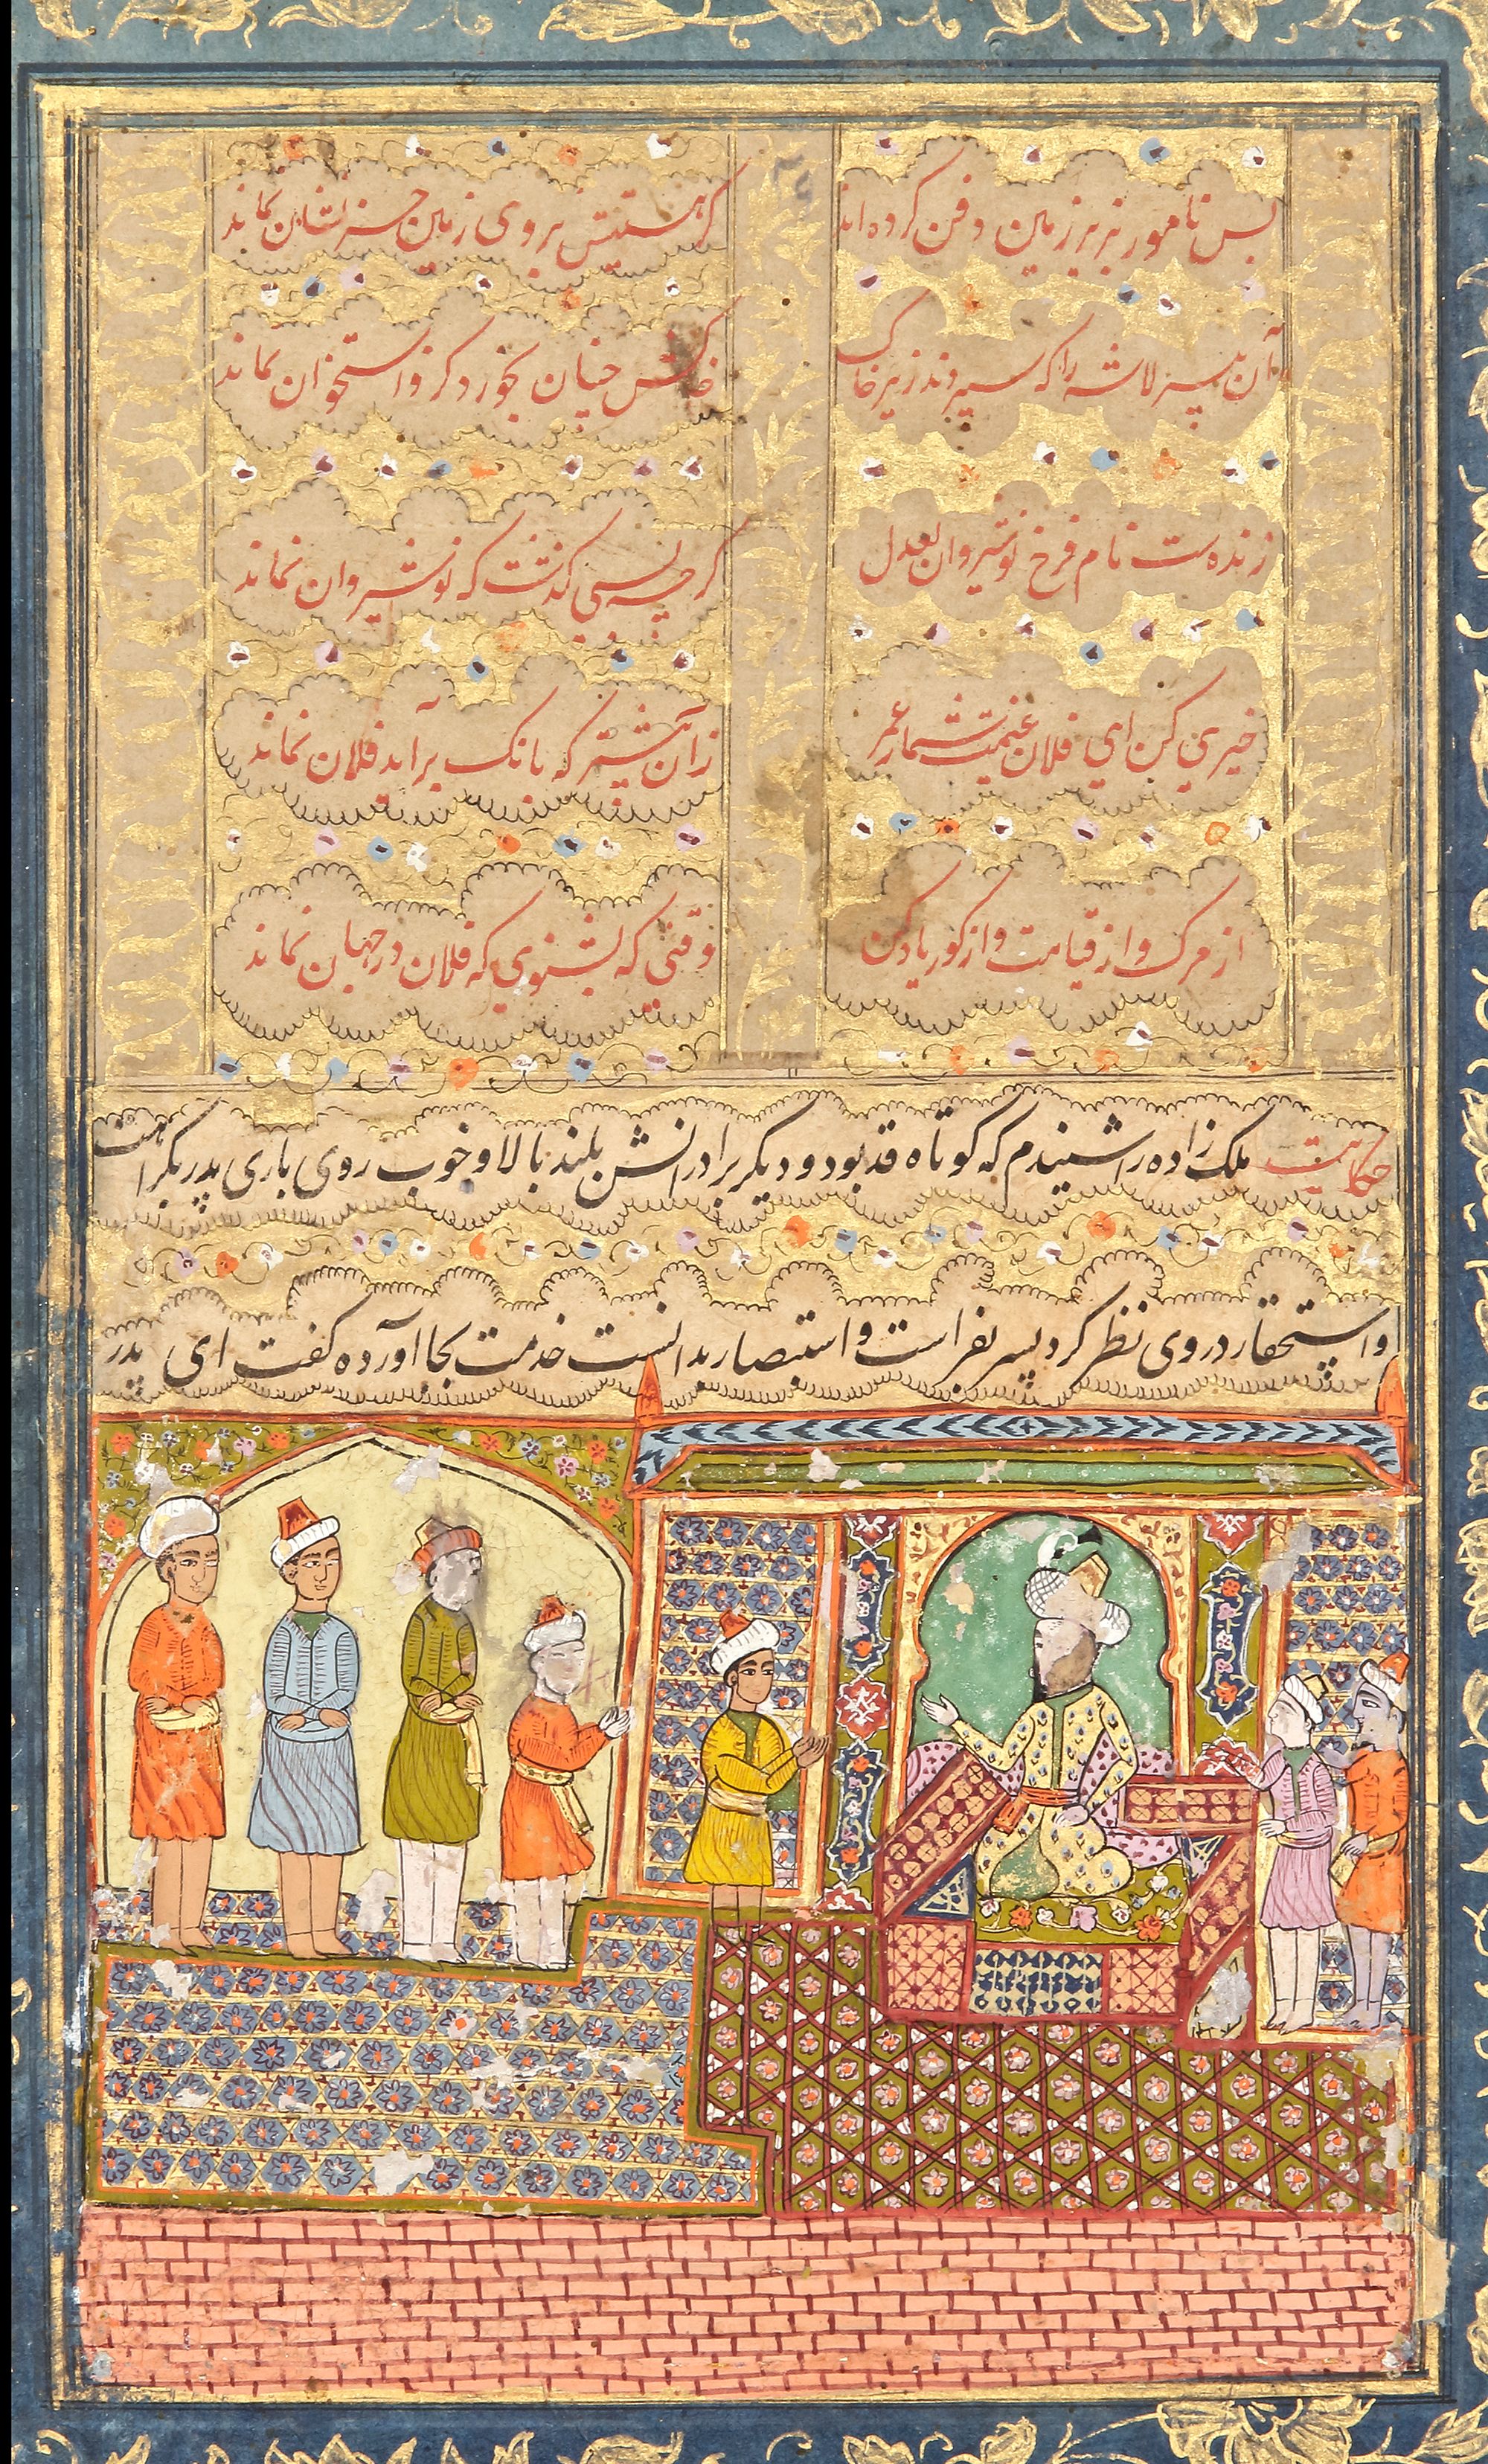 بس نامور بزیر زمین دفن کرده‌اند کز هستیش بروی زمین نشان نماند
آن پیر لاشه را که سپردند زیر خاک خاکش چنان بخورد کزو استخوان نماند
زنده‌ست نام فرخ نوشیروان بعدل گرچه بسی گذشت که نوشیروان نماند
خیری کن ای فلان غنیمت شمار عمر زان پیشتر که بانک برآید فلان نماند
از مرک و از قیامت و از کور یاد کن وقتی که بشنوی که فلان در جهان نماند
حکایت ملک زاده را شنیدم که کوتاه قد بود و دیگر برادرانش بلند بالا و خوب روی باری پدر بکراهت
و استحقار در وی نظر کرد پسر بفراست و استبصار بدانست خدمت بجا آورده گفت ای پدر